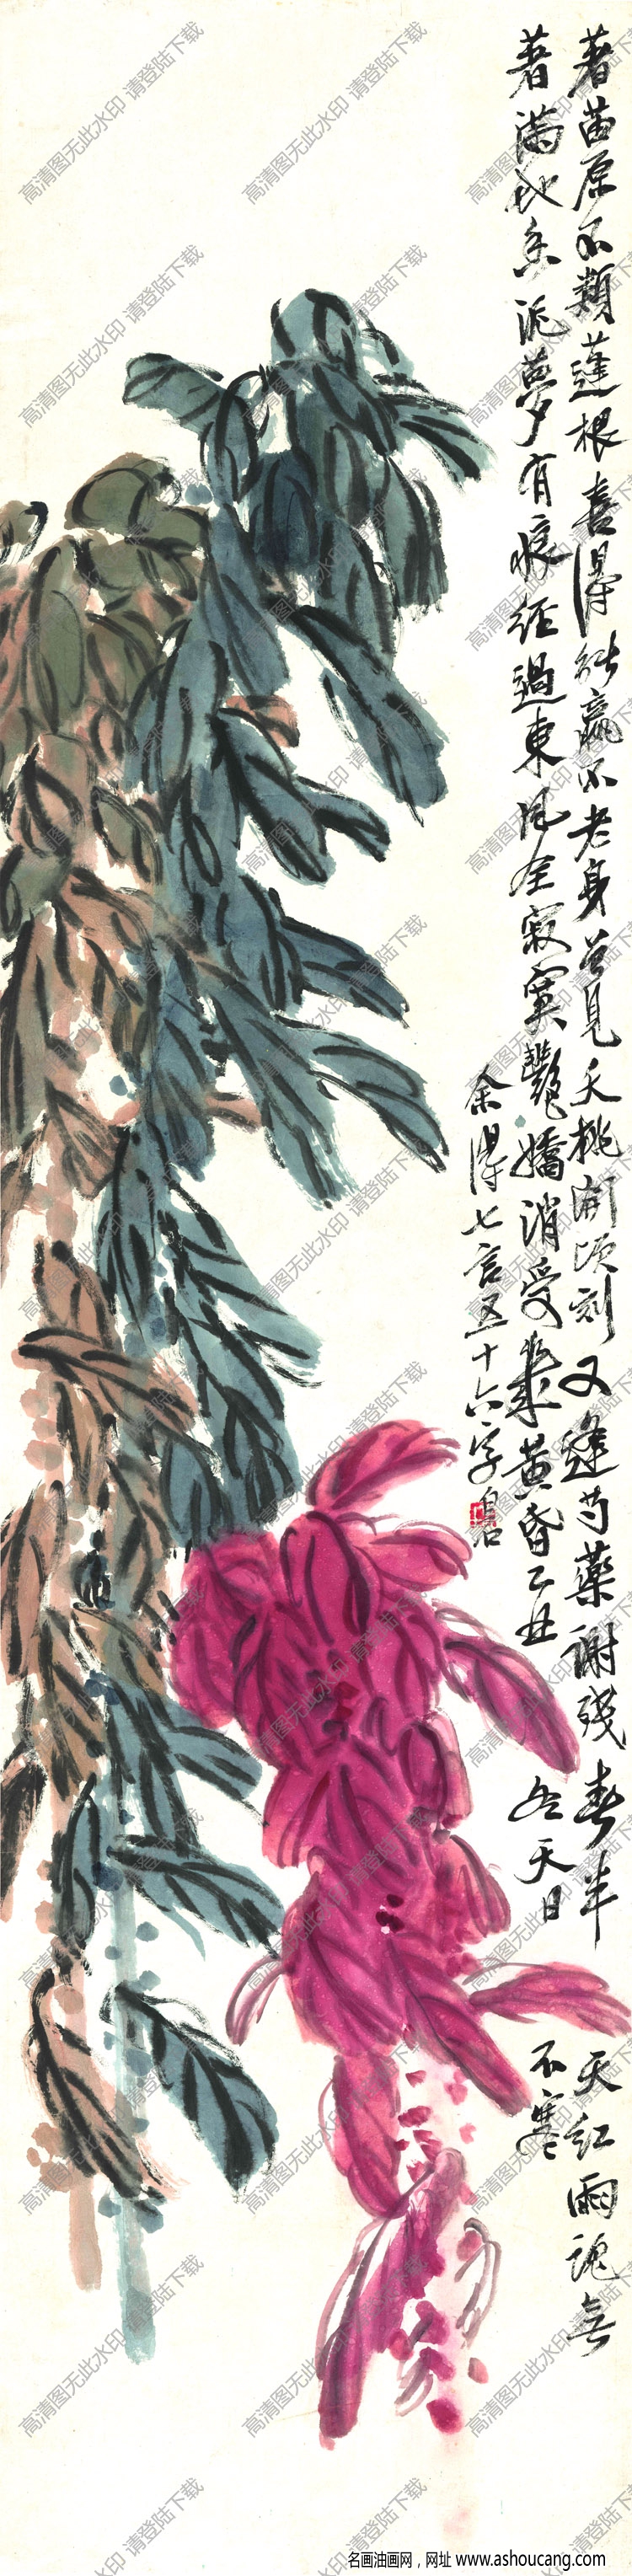 著苗原不類蓬根喜得能贏不老身曾見夭桃開頃刻又逢芍藥謝殘春半天紅雨魂無
著滿地香泥夢有痕經過東風全寂寞艷嬌消受幾黃昏乙丑冬天日不寒
余得七言五十六字白石
高清图无此水印 请登陆下载
名画油画网，网址 www.ashoucang.com